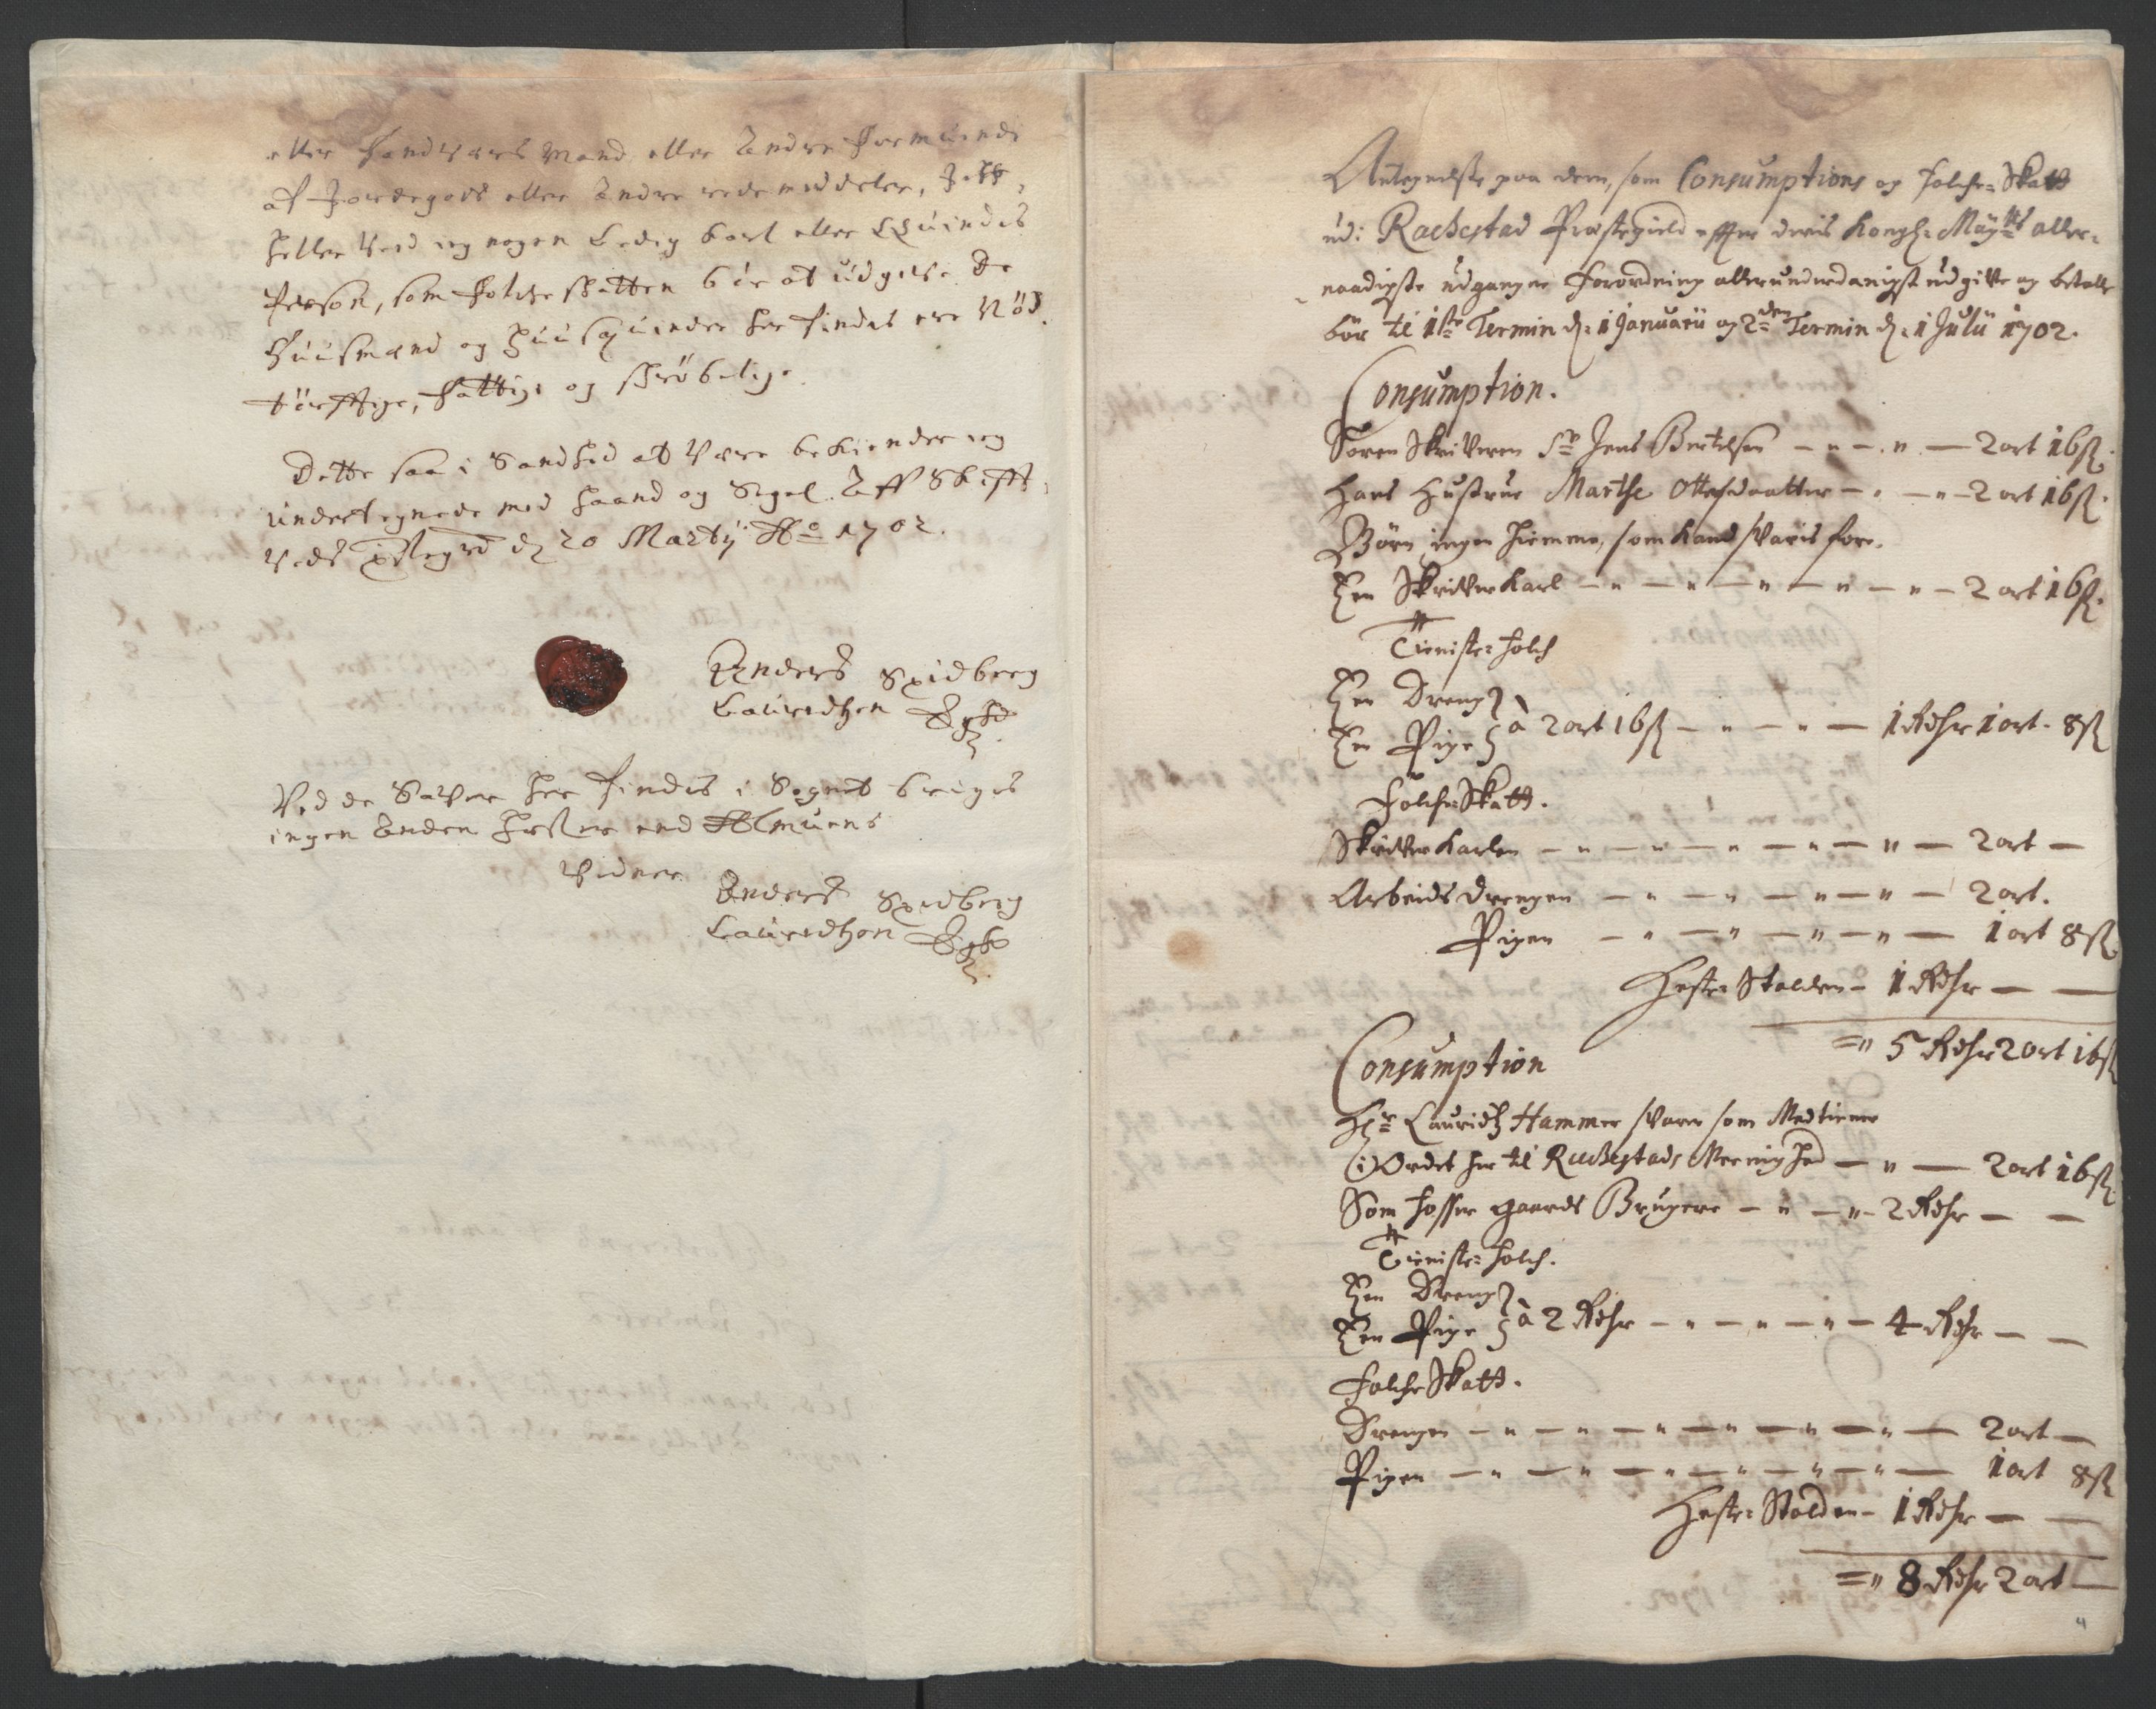 eller Handverks Mand eller Andre Formuende
af Jordegods eller Andre rede middeler, Ey
heller Veed ieg nogen Ledig karl eller Qvindis
Person, som Folcke skatten bör at udgifve. De
Huusmænd og Huusqvinder her findes ere Nöd
törfftige, Fattige og skröbelige.
Dette saa i Sandhed at Vere bekiender ieg
undertegnede med Haand og Segel. Aff Skifft
Veds Prestegrd d 20 Martij Ao 1702.
Anders Spidberg
Lauridtzen
Ved de Sauger her findes i Sognet brugis
ingen Anden Hester end Almuens
Vidner
Anders Spidberg
Lauridtzon
Antegnelse paa dem, som Consumptions og Folche-Skatt
ud: Rachestad Prestegield effter deris Kongl: Mayts aller-
naadigste udgangne Forordning allerunderdanigst udgifve og betalle
bör til 1ste Termin d: 1 Januarii og 2den Termin d: 1 Julii 1702.
Consumption.
Soren Skrifveren Sr Jens Bertelsen — " — " — 2 ort 16 s.
Hans Hustrue Marthe Ottesdaatter — " — " — 2 ort 16 s.
Börn ingen hiemme, som kand svaris fore.
Een Skrifverkarl — " — " — " — " — " — 2 ort 16 s.
Tieniste-Folch
Een Dreng
Een Pige } à 2 ort 16 s — " — " — 1 Rdhr 1 ort. 8 s
Folche-Skatt.
Skrifverkarlen — " — " — " — " — " — 2 ort —
Arbeidsdrengen — " — " — " — " — 2 ort.
Pigen — " — " — " — " — 1 ort 8 s.
Heste-Stalden — 1 Rdhr — —
=" 5 Rdhr 2 ort 16 s
Consumption
Hr Lauridtz Hammer svarer som Medtiener
(i) Ordet her til Rachestads Meenighed — " — 2 ort 16 s.
Som Fosser gaards Brugere — " — " — 2 Rdhr — —
Tieniste-Folch.
Een Dreng
Een Pige } à 2 Rdhr — " — " — " — 4 Rdhr — —
Folche Skatt.
Drengen — " — " — " — " — " — " — 2 ort —
Pigen — " — " — " — " — " — " — 1 ort 8 s
Heste-Stalden — 1 Rdhr — —
=" 8 Rdhr 2 ort —
4